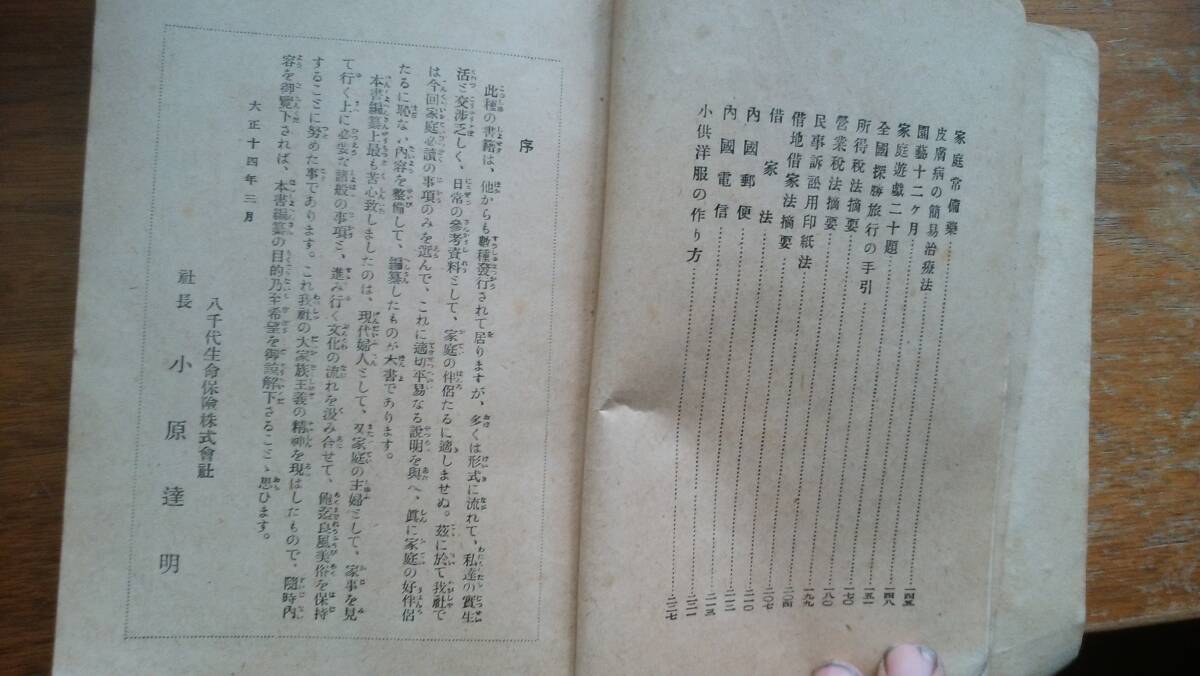 家庭常備藥 一四五
皮膚病の簡易治療法 一四八
園藝十二ヶ月 一五一
家庭遊戲二十題 一七〇
全國探勝旅行の手引 一八〇
所得稅法摘要 一九九
營業稅法摘要 二〇四
民事訴訟用印紙法 二〇七
借地借家法摘要 二一〇
借家法
內國郵便
內國電信 二三一
小供洋服の作り方 二三七
序
此種の書籍は、他からも數種發行されて居りますが、多くは形式に流れて、私達の實生
活と交渉乏しく、日常の參考資料として、家庭の伴侶たるに適しませぬ。茲に於て我社で
は今回家庭必讀の事項のみを選んで、これに適切平易なる說明を與へ、眞に家庭の好伴侶
たるに恥ない內容を整備して、編纂したものが本書であります。
本書編纂上最も苦心致しましたのは、現代婦人として、又家庭の主婦として、家事を見
て行く上に必要な諸般の事項と、進み行く文化の流れを汲み合せて、飽迄良風美俗を保持
することに努めた事であります。これ我社の大家族主義の精神を現はしたもので、隨時內
容を御覽下されば、本書編纂の目的乃至希望を御諒解下さることゝ思ひます。
大正十四年三月
八千代生命保險株式會社
社長 小原達明